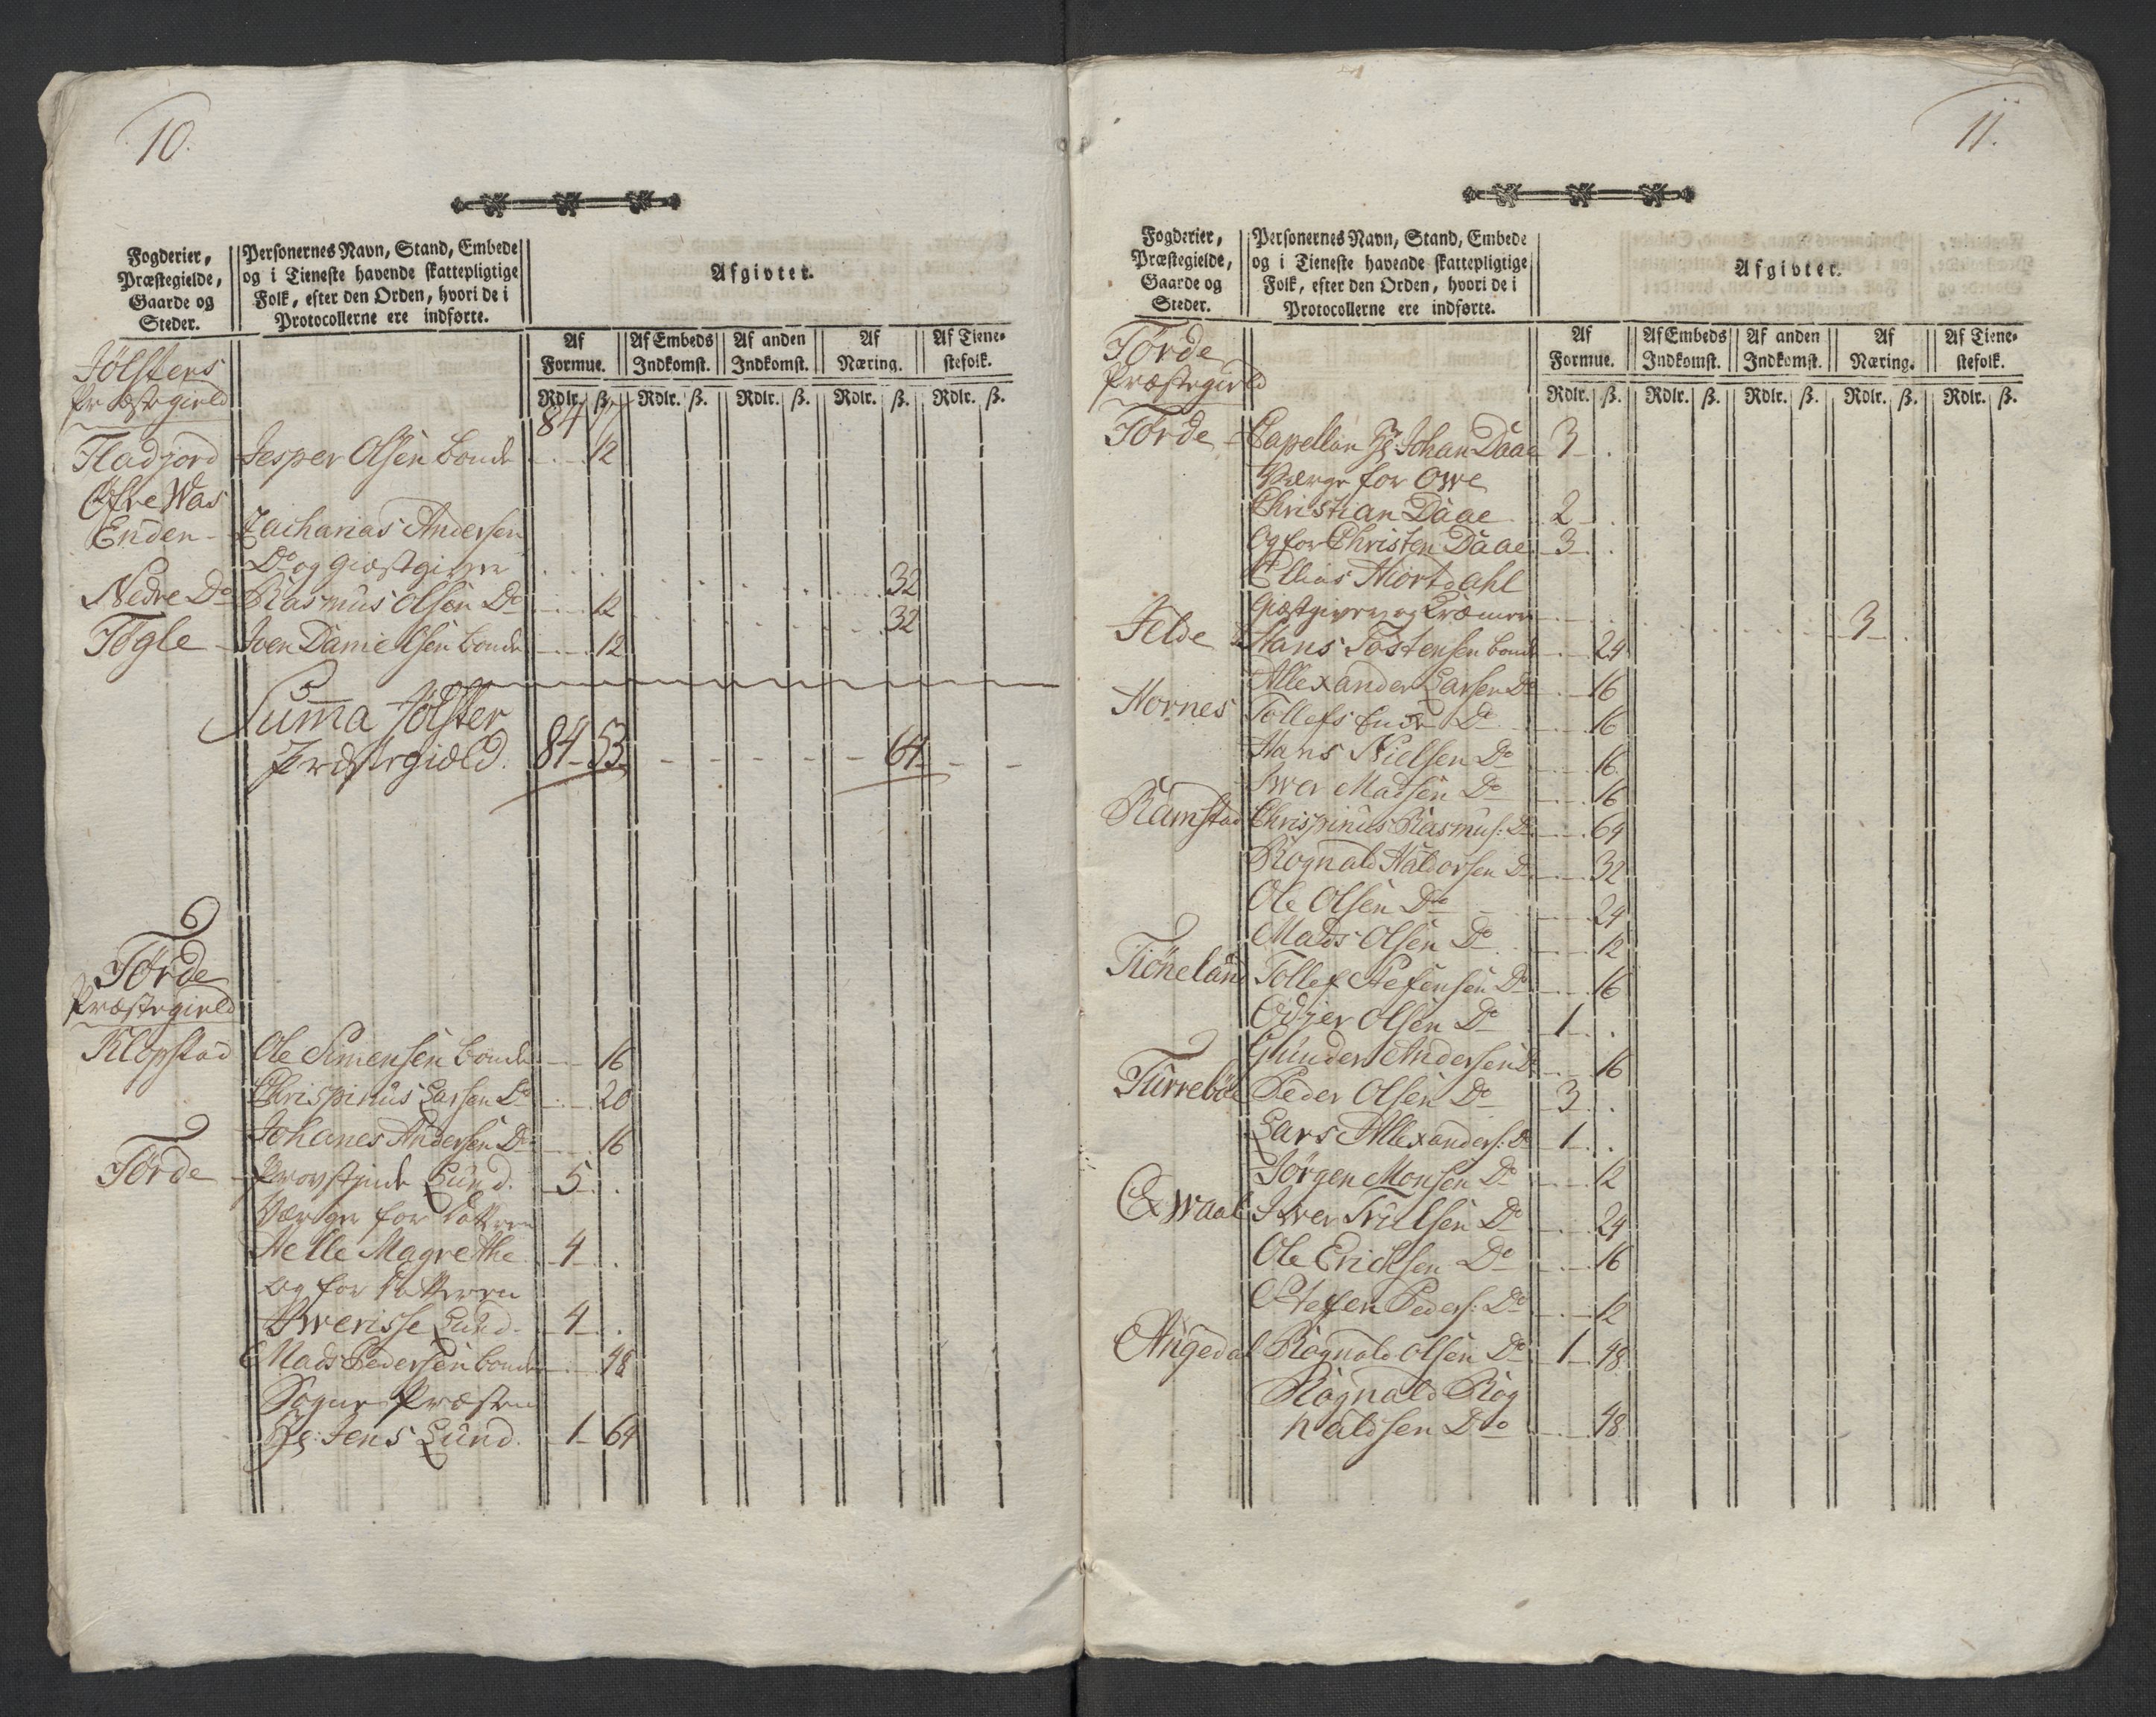 10.
Fogderier,
Præstegielde,
Gaarde og
Steder.
Personernes Navn, Stand, Embede
og i Tieneste havende skattepligtige
Folk, efter den Orden, hvori de i
Protocollerne ere indførte.
Afgivter.
Af Formue. Af Embeds Indkomst. Af anden Indkomst. Af Næring. Af Tienestefolk.
Rdlr. ß. Rdlr. ß. Rdlr. ß. Rdlr. ß. Rdlr. ß.
Jølsters
Præstegield
84 17
Fladjord Jesper Olsen bonde 12
Øfre Was
Enden Zacharias Andersen
Do og Giæstgiver 32
Nedre Do Rasmus Olsen Do 12 32
Fogle Joen Danielsen bonde 12
Summa Jølster
Præstegield. 84 53 64
Førde
Præstegield
Klopstad Ole Simensen bonde 16
Chrispinus Larsen Do 20
Johanes Andersen Do 16
Førde Provstinde Lund. 5
Værge for datteren
Helle Magrethe 4
og for datteren
Awerisse Lund 4
Mads Pedersen bonde 48
Sogne Præsten
Hr: Jens Lund. 1 64
11.
Fogderier,
Præstegielde,
Gaarde og
Steder.
Personernes Navn, Stand, Embede
og i Tieneste havende skattepligtige
Folk, efter den Orden, hvori de i
Protocollerne ere indførte.
Afgivter.
Af Formue. Af Embeds Indkomst. Af anden Indkomst. Af Næring. Af Tienestefolk.
Rdlr. ß. Rdlr. ß. Rdlr. ß. Rdlr. ß. Rdlr. ß.
Førde
Præstegield
Førde Capellan Hr Johan Daae 3
Værge for Owe
Christian Daae 2
Og for Christen Daae 3
Ellias Hiortdahl
Giæstgiver og Cræmer 3
Felde Hans Tostensen bonde 24
Allexander Larsen Do 16
Hornes Tollefs Enke Do 16
Hans Nielsen Do 16
Iwer Madsen Do 16
Ramstad Chrispinus Rasmus: Do 64
Rognald Haldorsen Do 32
Ole Olsen Do 24
Mads Olsen Do 12
Fiöneland Tollef Stefensen Do 16
Odjer Olsen Do 1
Gunder Andersen Do 16
Furreböe Peder Olsen Do 3
Lars Allexanders: Do 1
Jörgen Monsen Do 12
Exwaal Iwer Truelsen Do 24
Ole Erichsen Do 16
Stefen Peders: Do 12
Angedal Rognald Olsen Do 1 48
Rognald Rog
naldsen Do 48